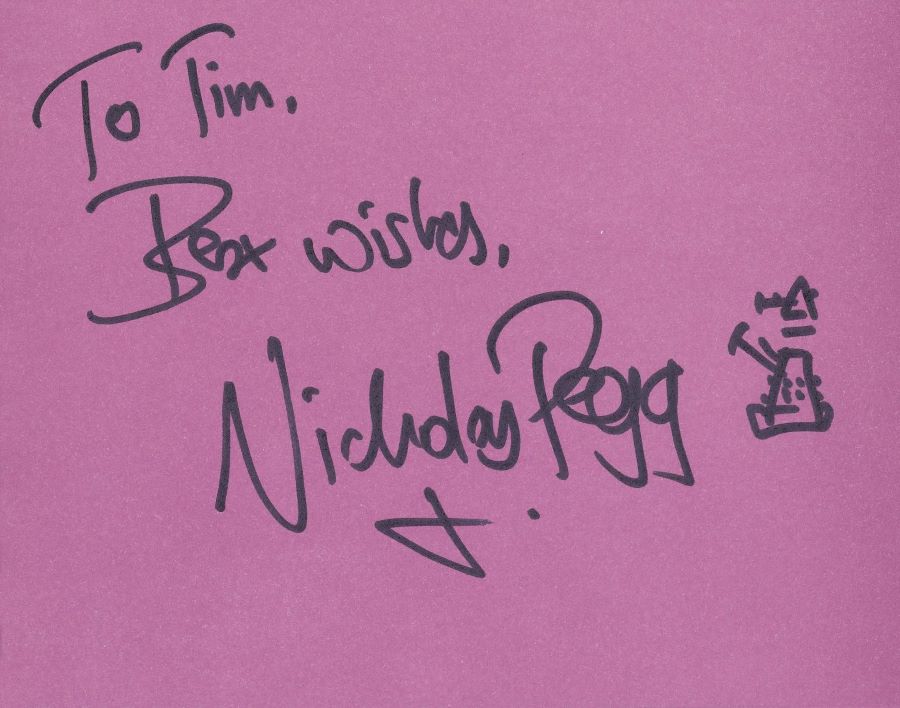 To Tim.
Best wishes.
Nicholas Pegg